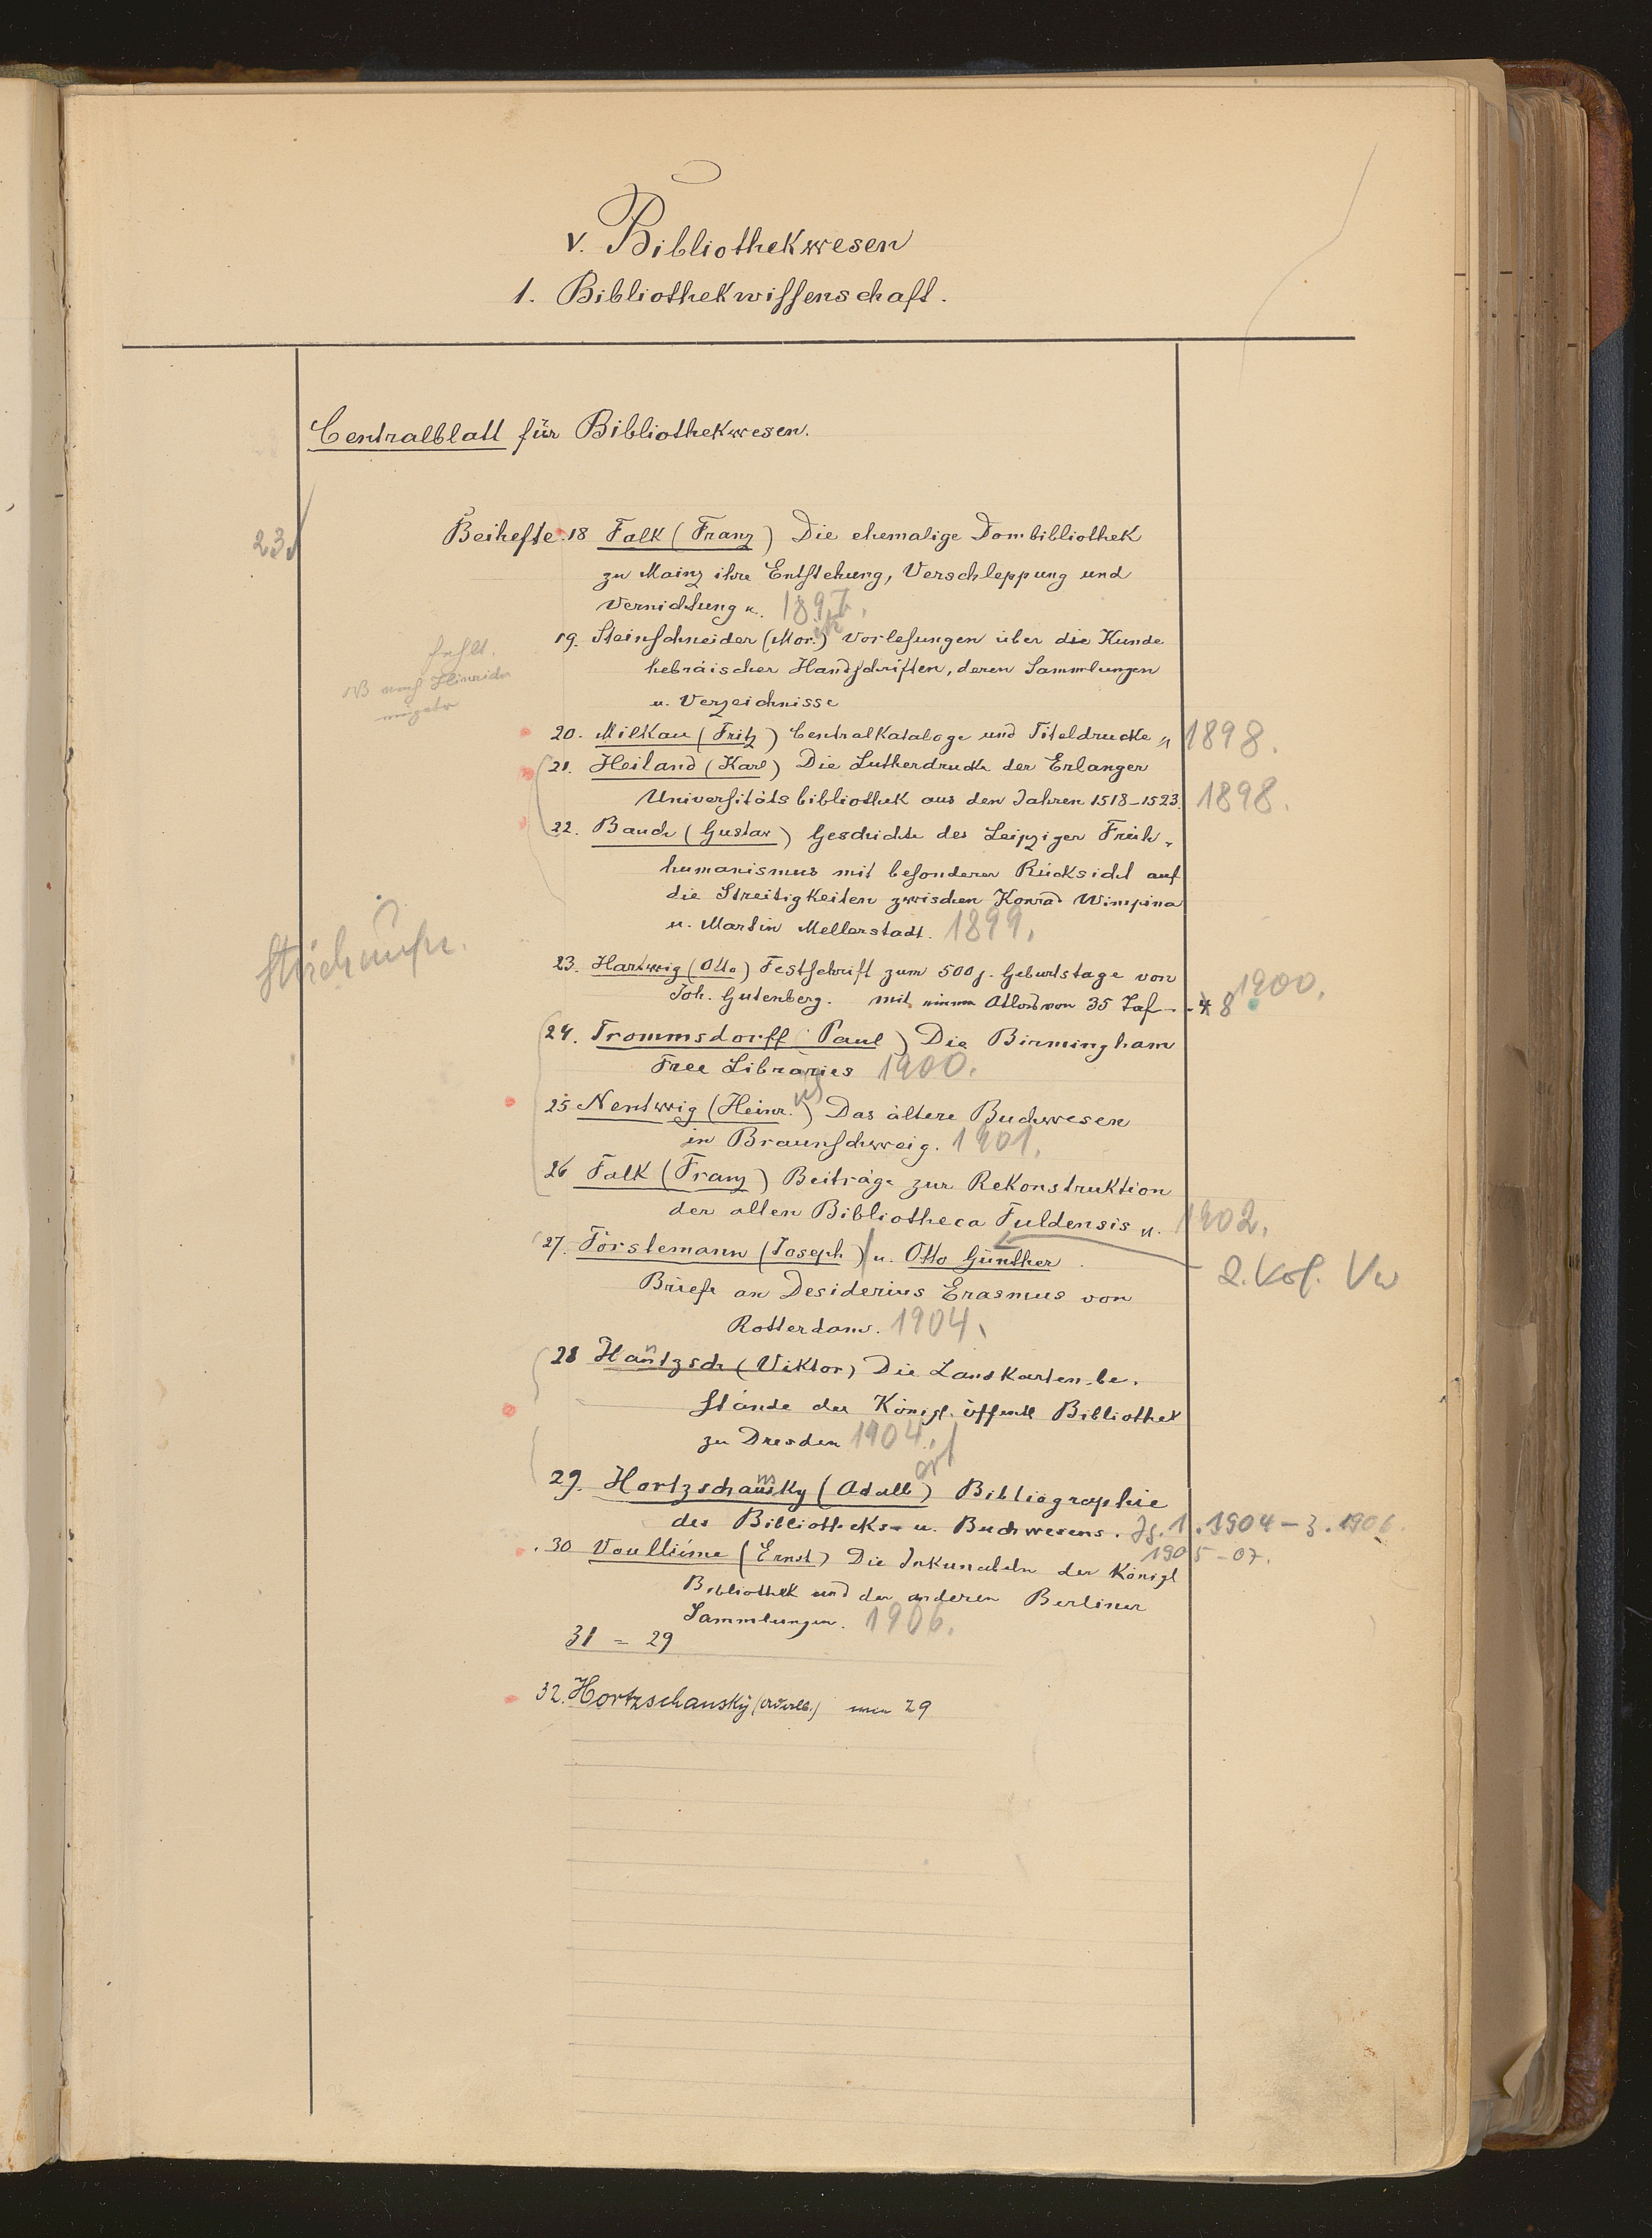 V. Bibliothekwesen
1. Bibliothekwissenschaft.
Centralblatt für Bibliothekwesen.
23
Beihefte. 18 Falk (Franz) Die ehemalige Dombibliothek
zu Mainz ihre Entstehung, Verschleppung und
Vernichtung u. 1897.
fehlt.
19. Steinschneider (Mor.) Vorlesungen über die Kunde
hebräischer Handschriften, deren Sammlungen
u. Verzeichnisse
20. Milkau (Fritz) Centralkataloge und Titeldrucke 1898.
21. Heiland (Karl) Die Lutherdrucke der Erlanger
Universitätsbibliothek aus den Jahren 1518-1523. 1898.
22. Bauch (Gustav) Geschichte des Leipziger Früh-
humanismus mit besonderer Rücksicht auf
die Streitigkeiten zwischen Konrad Wimpina
u. Martin Mellerstadt. 1899.
23. Hartwig (Otto) Festschrift zum 500j. Geburtstage von
Joh. Gutenberg. mit einem Atlas von 35 Taf - 8 1900.
24. Trommsdorff (Paul) Die Birmingham
Free Libraries 1900.
25 Nentwig (Heinr.) Das ältere Buchwesen
in Braunschweig. 1901.
26 Falk (Franz) Beiträge zur Rekonstruktion
der alten Bibliotheca Fuldensis u. 1902.
27. Förstemann (Joseph) u. Otto Günther
2. Vf. Vw
Briefe an Desiderius Erasmus von
Rotterdam. 1904.
28 Hantzsch (Viktor) Die Landkarten-be-
stände der Königl. öffentl Bibliothek
zu Dresden 1904.
29. Hortzschansky (Adalb) Bibliographie
des Bibliotheks- u. Buchwesens. Jg. 1. 1904 - 3. 1906.
1905-07.
30 Voulliéme (Ernst) Die Inkunabeln der Königl
Bibliothek und der anderen Berliner
Sammlungen. 1906.
31 = 29
32. Hortzschansky (Adalb.) 29